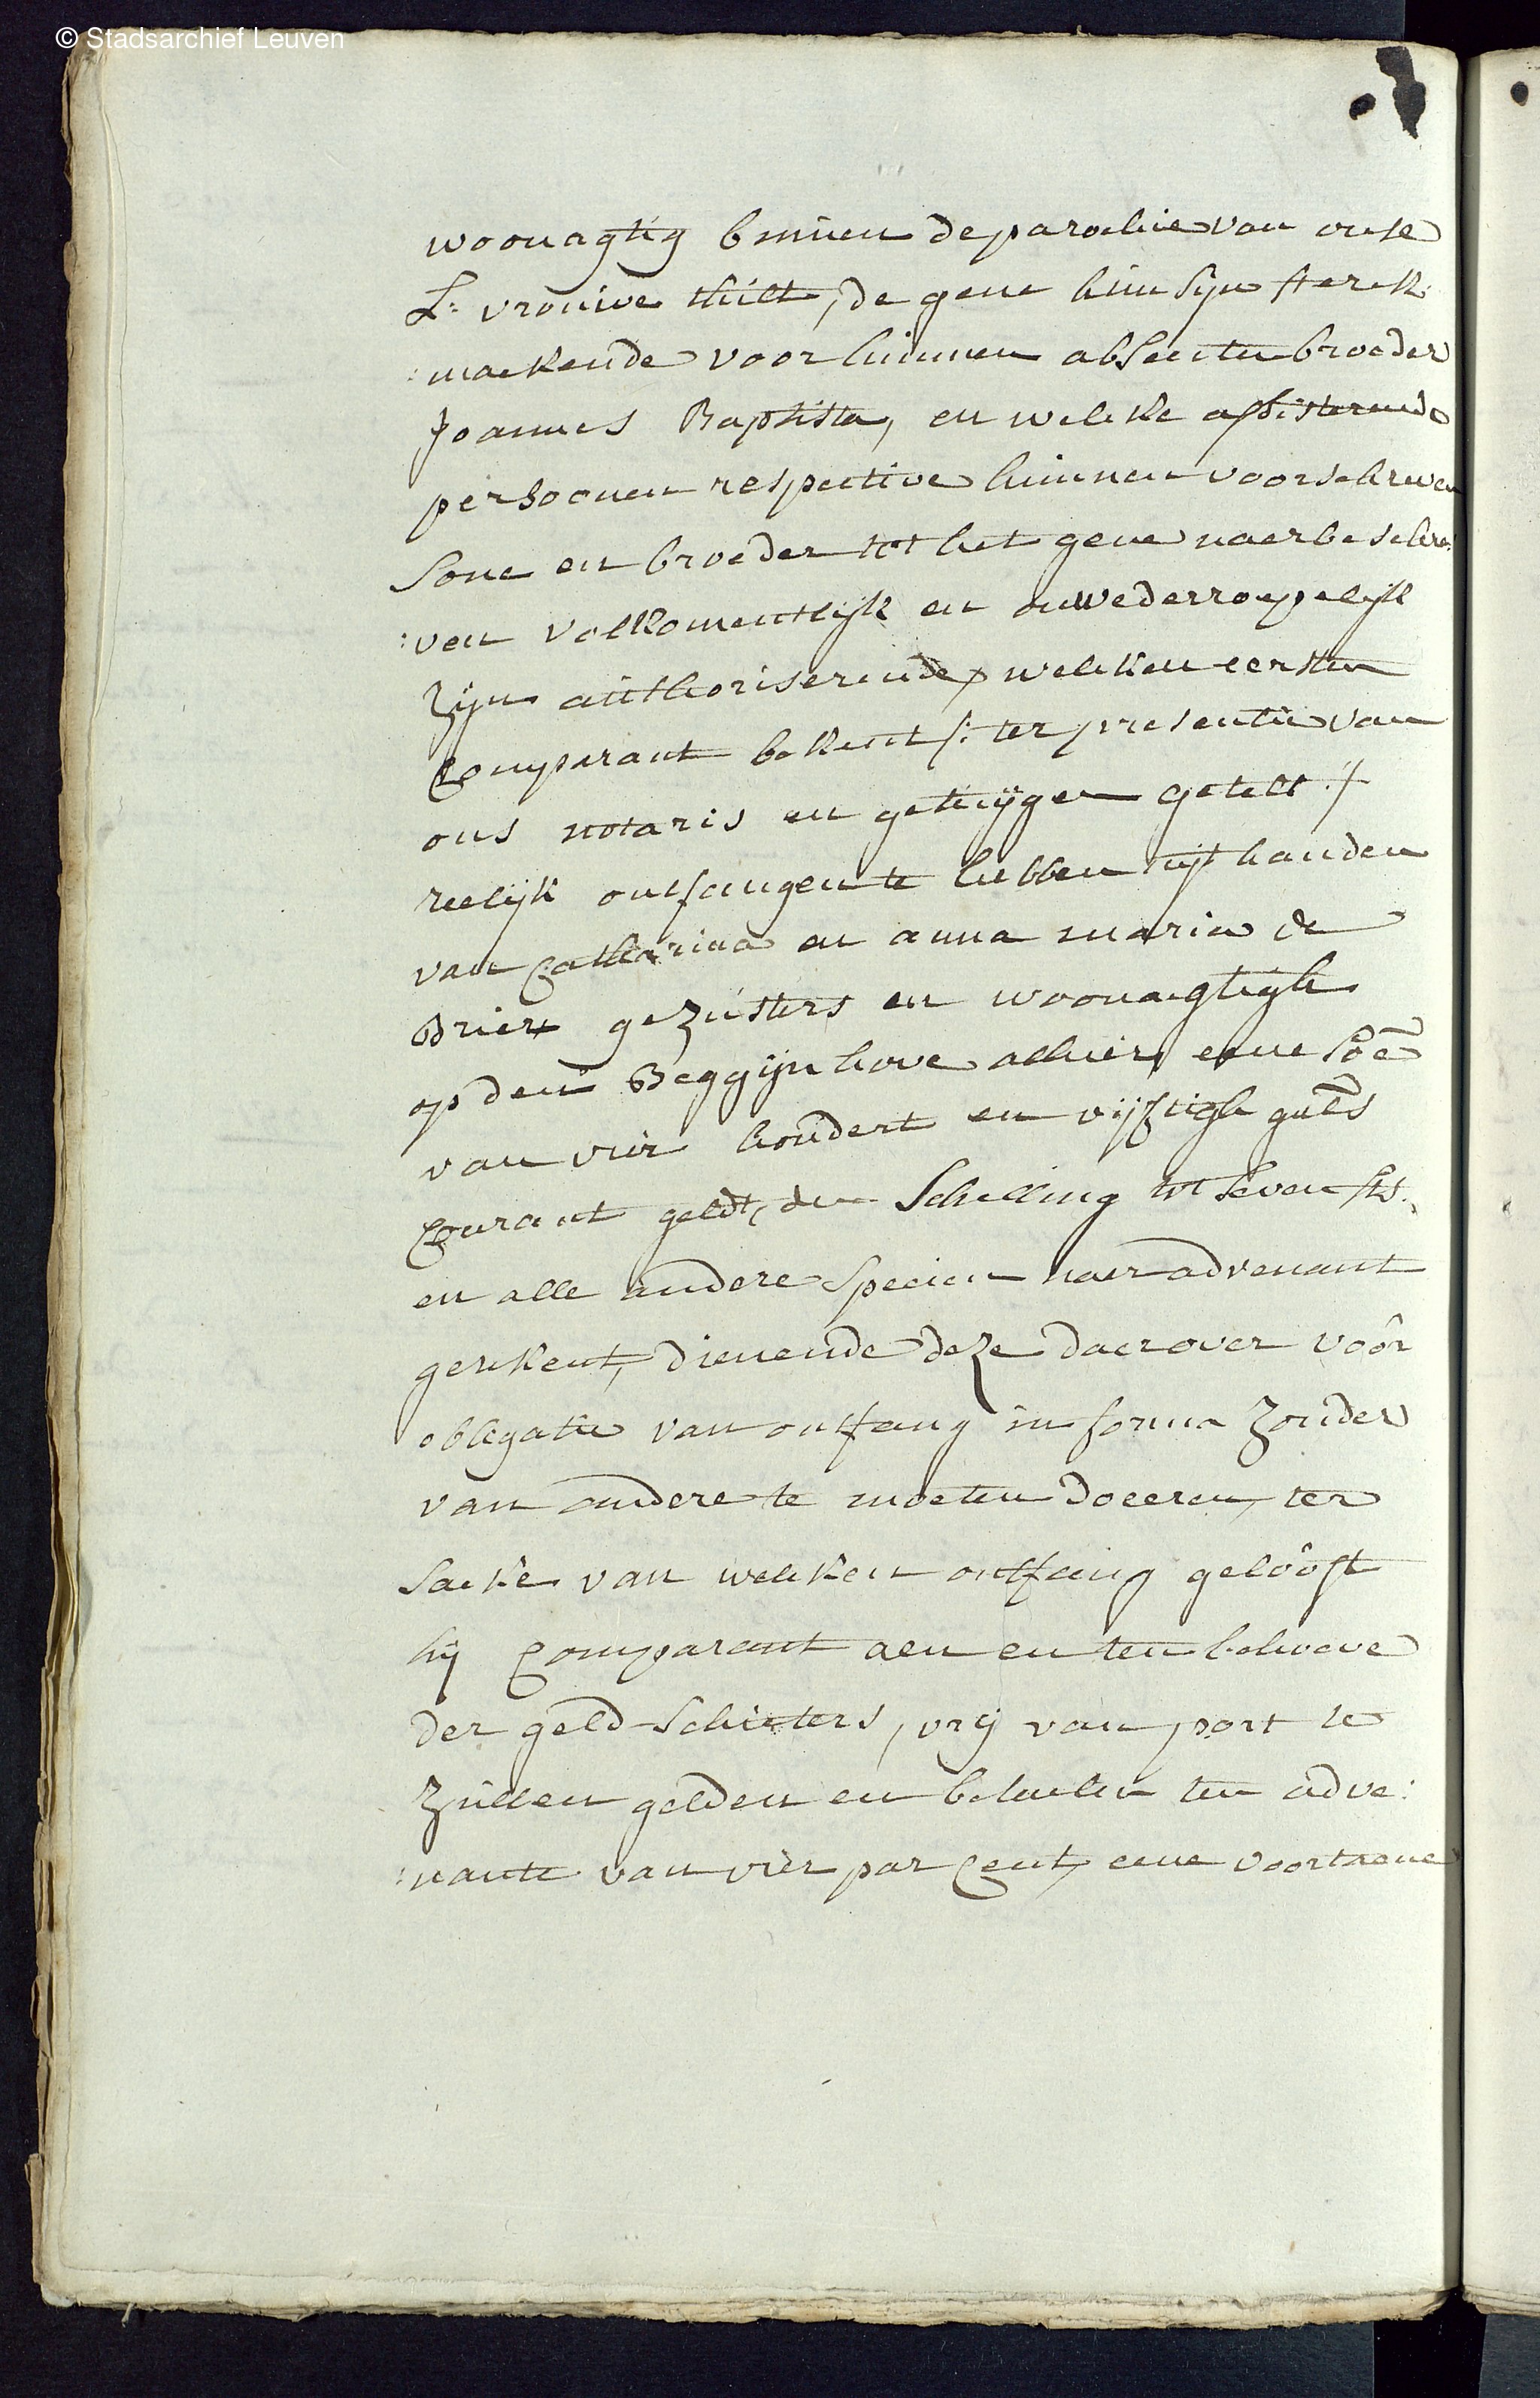 © Stadsarchief Leuven
woonagtig binnen de parochie van onse
L: vrouwe thilt, de gene hun sijn sterk
:maekende voor hunnen absenten broeder
Joannes Baptista, en welcke assisterende
persoonen respective hunnen voorschreven
sone en broeder tot het gene naerbeschre:
:ven volkomentlijk en onwederroepelijk
zijn authoriserende, welcken eersten
Comparant bekent /: ter presentie van
ons notaris en getuijgen getelt :/
reelijk ontfangen te hebben uijt handen
van Catharina en anna maria de
Brier gezusters en woonagtigh
op den Beggijnhove alhier eene soē
van vier hondert en vijftigh gul̄s
Courant geldt, den Schelling tot seven st̄s.
en alle andere specien naer advenant
gerekent, dienende deze daerover voor
obligatie van ontfang in forma zonder
van andere te moeten doceren, ter
saeke van welcken ontfang gelooft
hij Comparant aen en ten behoeve
der geld-schieters, vrij van port te
zullen gelden en betaelen ten adve:
:nante van vier par Cent, eene voortaene